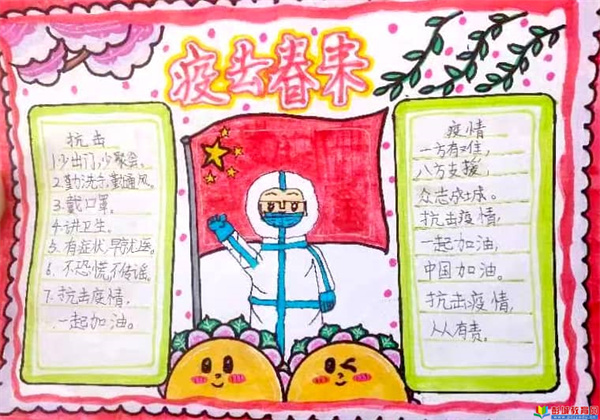 疫去春来
抗击
1.少出门,少聚会。
2.勤洗手,勤通风。
3.戴口罩。
4.讲卫生。
5.有症状,早就医。
6.不恐慌,不传谣。
7.抗击疫情,
一起加油。
疫情
一方有难,
八方支援,
众志成城。
抗击疫情,
一起加油,
中国加油。
抗击疫情,
人人有责。